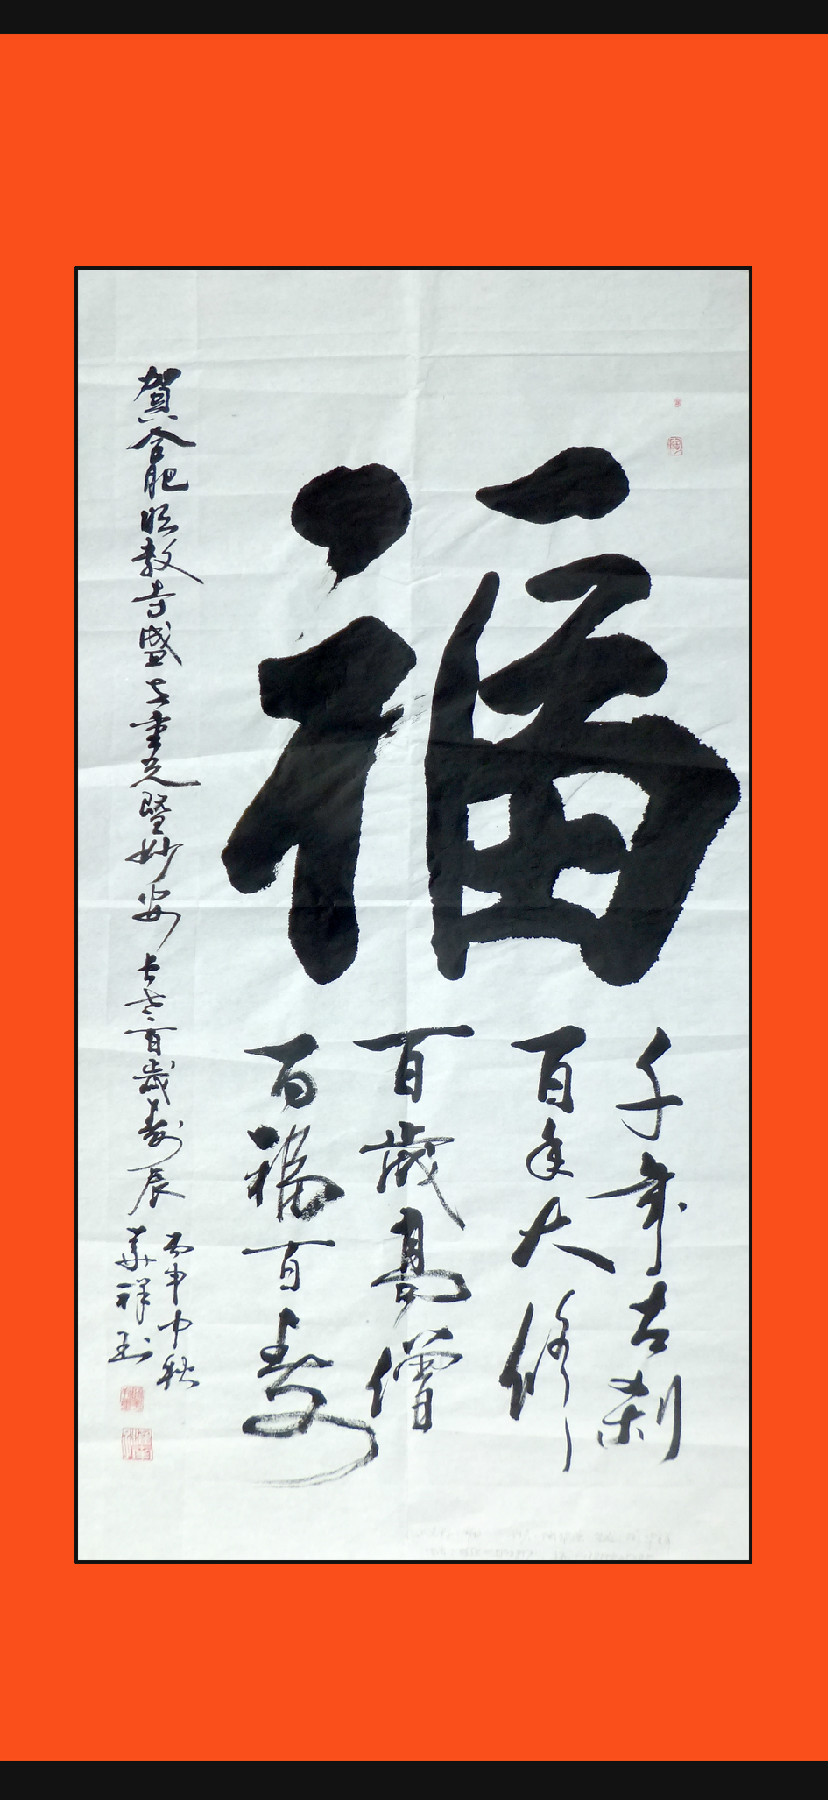 福
千年古刹
百年大修
百歲高僧
百福百壽
賀合肥明教寺盛世重光暨妙安長老百歲壽辰
丙申中秋
華祥書